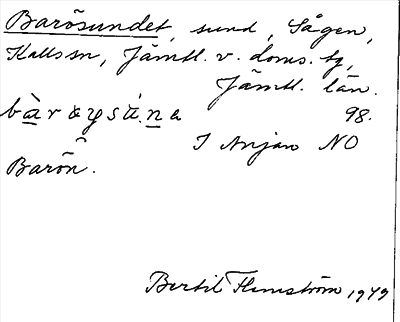 Barösundet, sund, Sågen,
Kalls sn, Jämtl. v. doms. tg,
Jämtl. län.
98.
I Anjan NO
Barön.
Bertil Flemström 1979